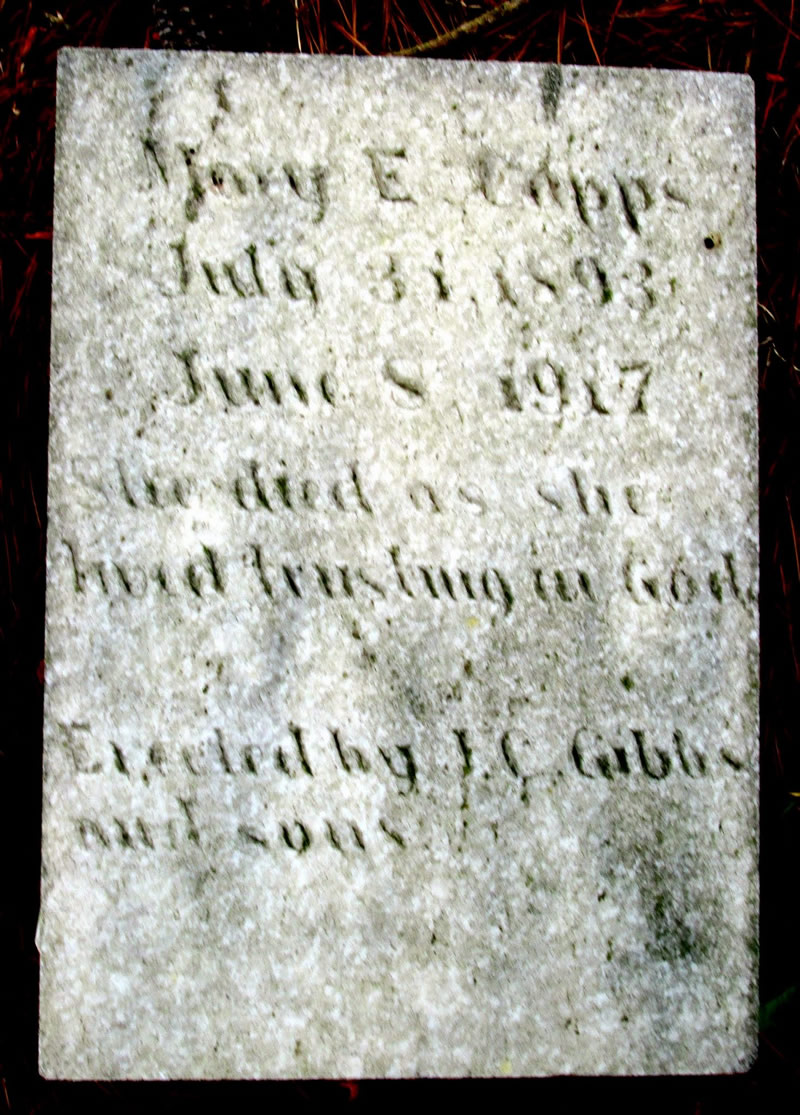 Mary E. Capps
July 31, 1893
June 8 1917
She died as she
lived trusting in God.
Erected by J. C. Gibbs
and sons